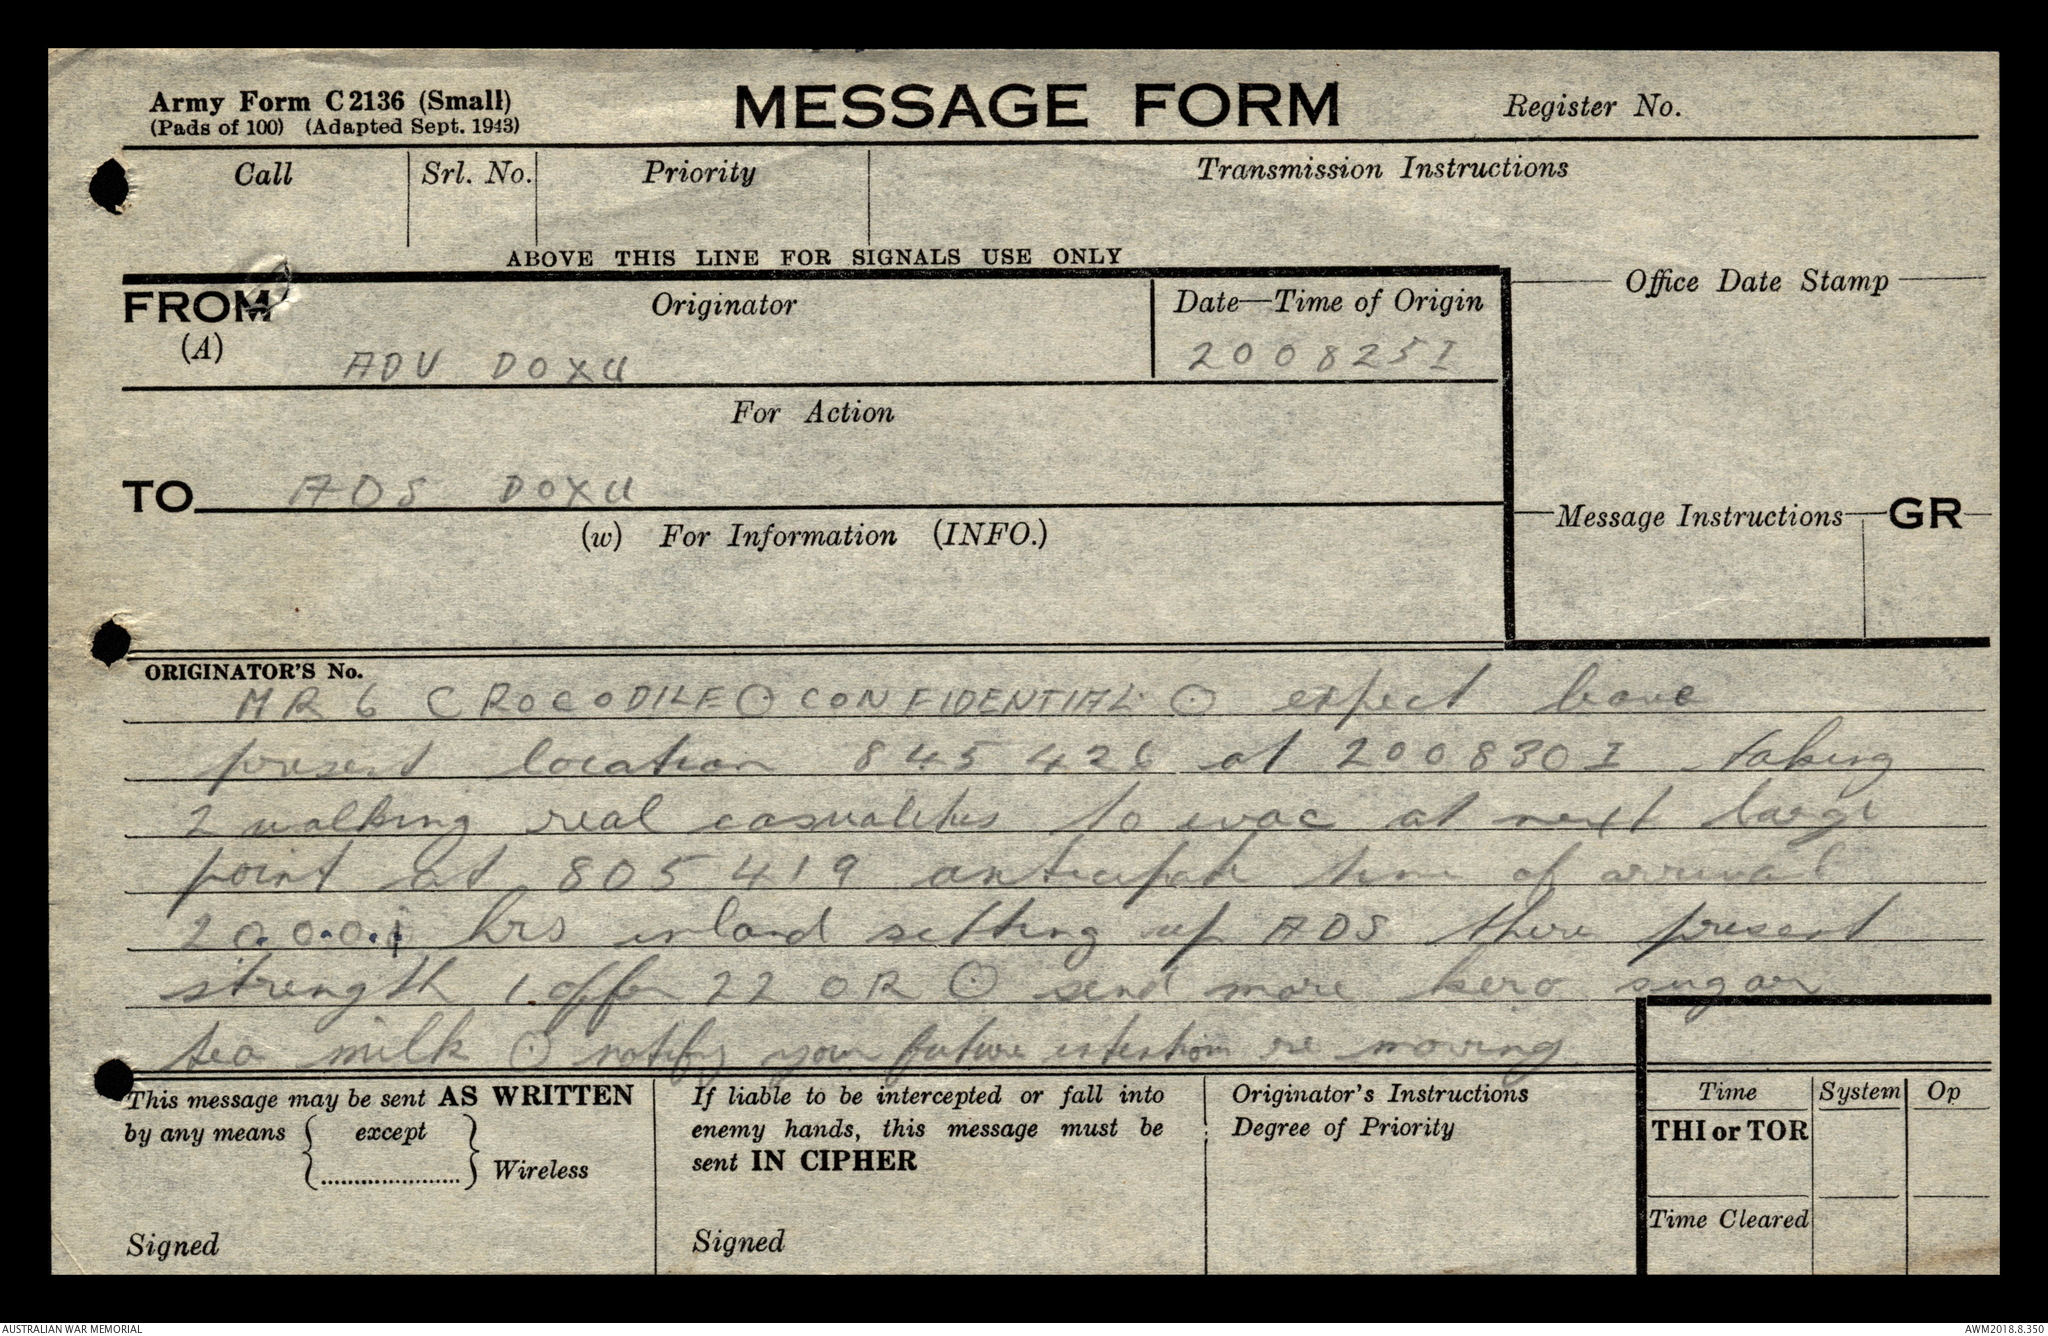 Army Form C2136 (Small)
(Pads of 100) (Adapted Sept. 1943)
MESSAGE FORM
Register No.
Call
Srl. No.
Priority
Transmission Instructions
ABOVE THIS LINE FOR SIGNALS USE ONLY
FROM
(A)
Originator
ADV DOXU
Date—Time of Origin
200825I
Office Date Stamp
For Action
TO ADS DOXU
(w) For Information (INFO.)
Message Instructions GR
ORIGINATOR'S No.
MR 6 CROCODILE ⊙ CONFIDENTIAL ⊙ expect leave
present location 845426 at 200830I taking
2 walking real casualties to evac at next barge
point at 805419 anticipate time of arrival
hrs inland setting up ADS there present
strength 1 offr 22 OR ⊙ send more kero sugar
tea milk ⊙ notify your future intentions re moving
This message may be sent AS WRITTEN
by any means { except ..................... } Wireless
Signed
If liable to be intercepted or fall into
enemy hands, this message must be
sent IN CIPHER
Signed
Originator's Instructions
Degree of Priority
Time
System
Op
THI or TOR
Time Cleared
AUSTRALIAN WAR MEMORIAL
AWM2018.8.350